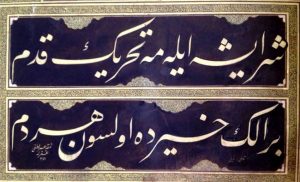 شر ايشه ايلمه تحريك قدم
بر الك خيرده اولسون هر دم